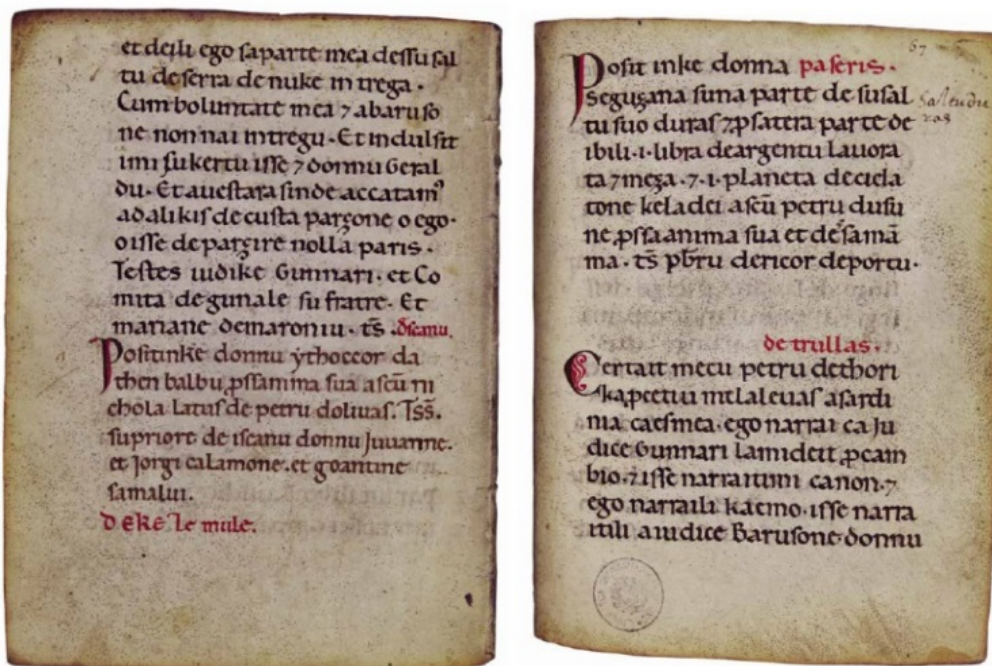 et deili ego saparte mea dessu sal
tu de serra de nuke in trega.
Cum boluntate mea 7 abaruso
ne non nai intregu. Et indulsit
imi su kertu isse 7 donnu Geral
du. Et auestara sinde accatam̄
ad alikis de custa parçone o ego.
o isse de parçire nolla paris.
Testes iudike Gunnari. et Co
mita de gunale su fratre. Et
mariane de maroniu. ts̄.
Positinke donnu ythoccor da
then balbu, ꝓssanima sua ascū ni
chola latus de petru dolivas. Tss̄.
supriore de iscanu donnu Juuanne.
et Jorgi calamone. et goantine
samalui.
DEKE le mule.
67
Posit inke donna paseris.
Segusana suna parte de susal
tu suo duras 7ꝓsatera parte de
ibili .i. libra deargentu lauora
ta 7 meça .7 .i. planeta decicla
tone keladei ascū petru dusu
ne ꝓssa anima sua et dessa mā
ma. ts̄ pb̄ru dericor deportu.
de trullas.
Certait mecu petru dethori
ka, ꝓcetiu mtlaleuas asardi
nia caesmea. ego narrai ca Ju
dice Gunnari lamideit ꝓcam
bio. 7 isse narraitimi canon. 7
ego narraili kaemo. isse narra
itili aiudice Barusone donnu